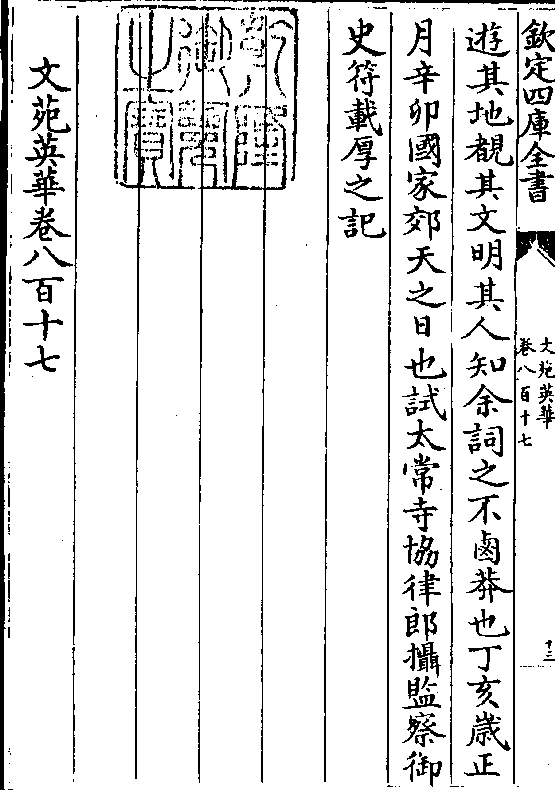 欽定四庫全書
文苑英華
卷八百十七
十三
遊其地覩其文明其人知余詞之不鹵莽也丁亥歲正
月辛卯國家郊天之日也試太常寺協律郎攝監察御
史符載厚之記
乾隆御覽之寶
文苑英華卷八百十七